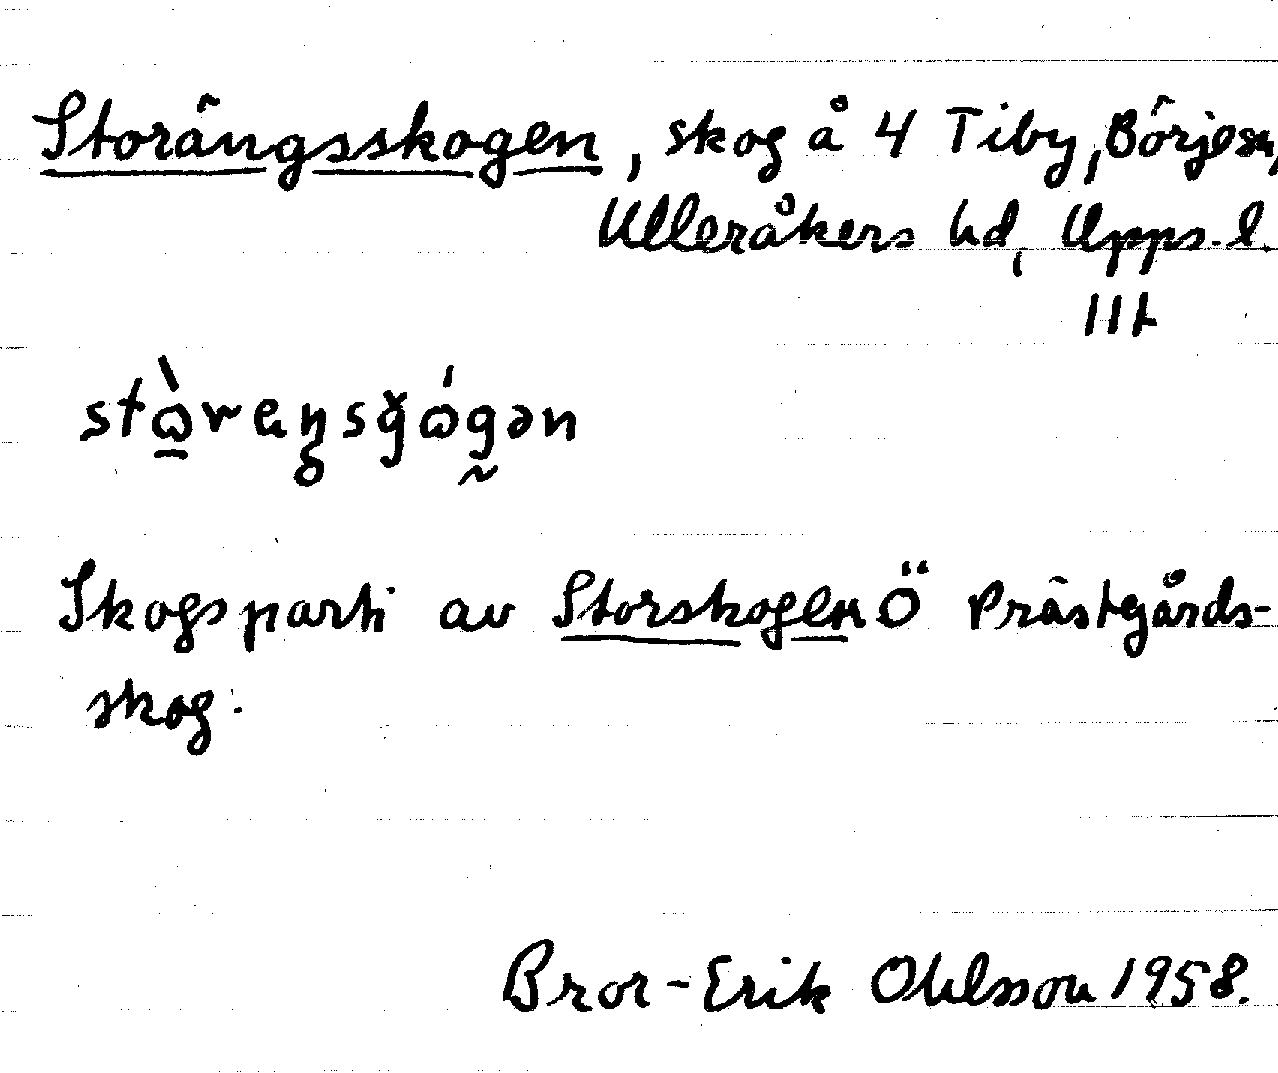 Storängsskogen, skog å 4 Tiby, Börje sn,
Ulleråkers hd, Upps. l.
111
Skogsparti av Storskogen Ö Prästgårds-
skog.
Bror-Erik Ohlsson 1958.